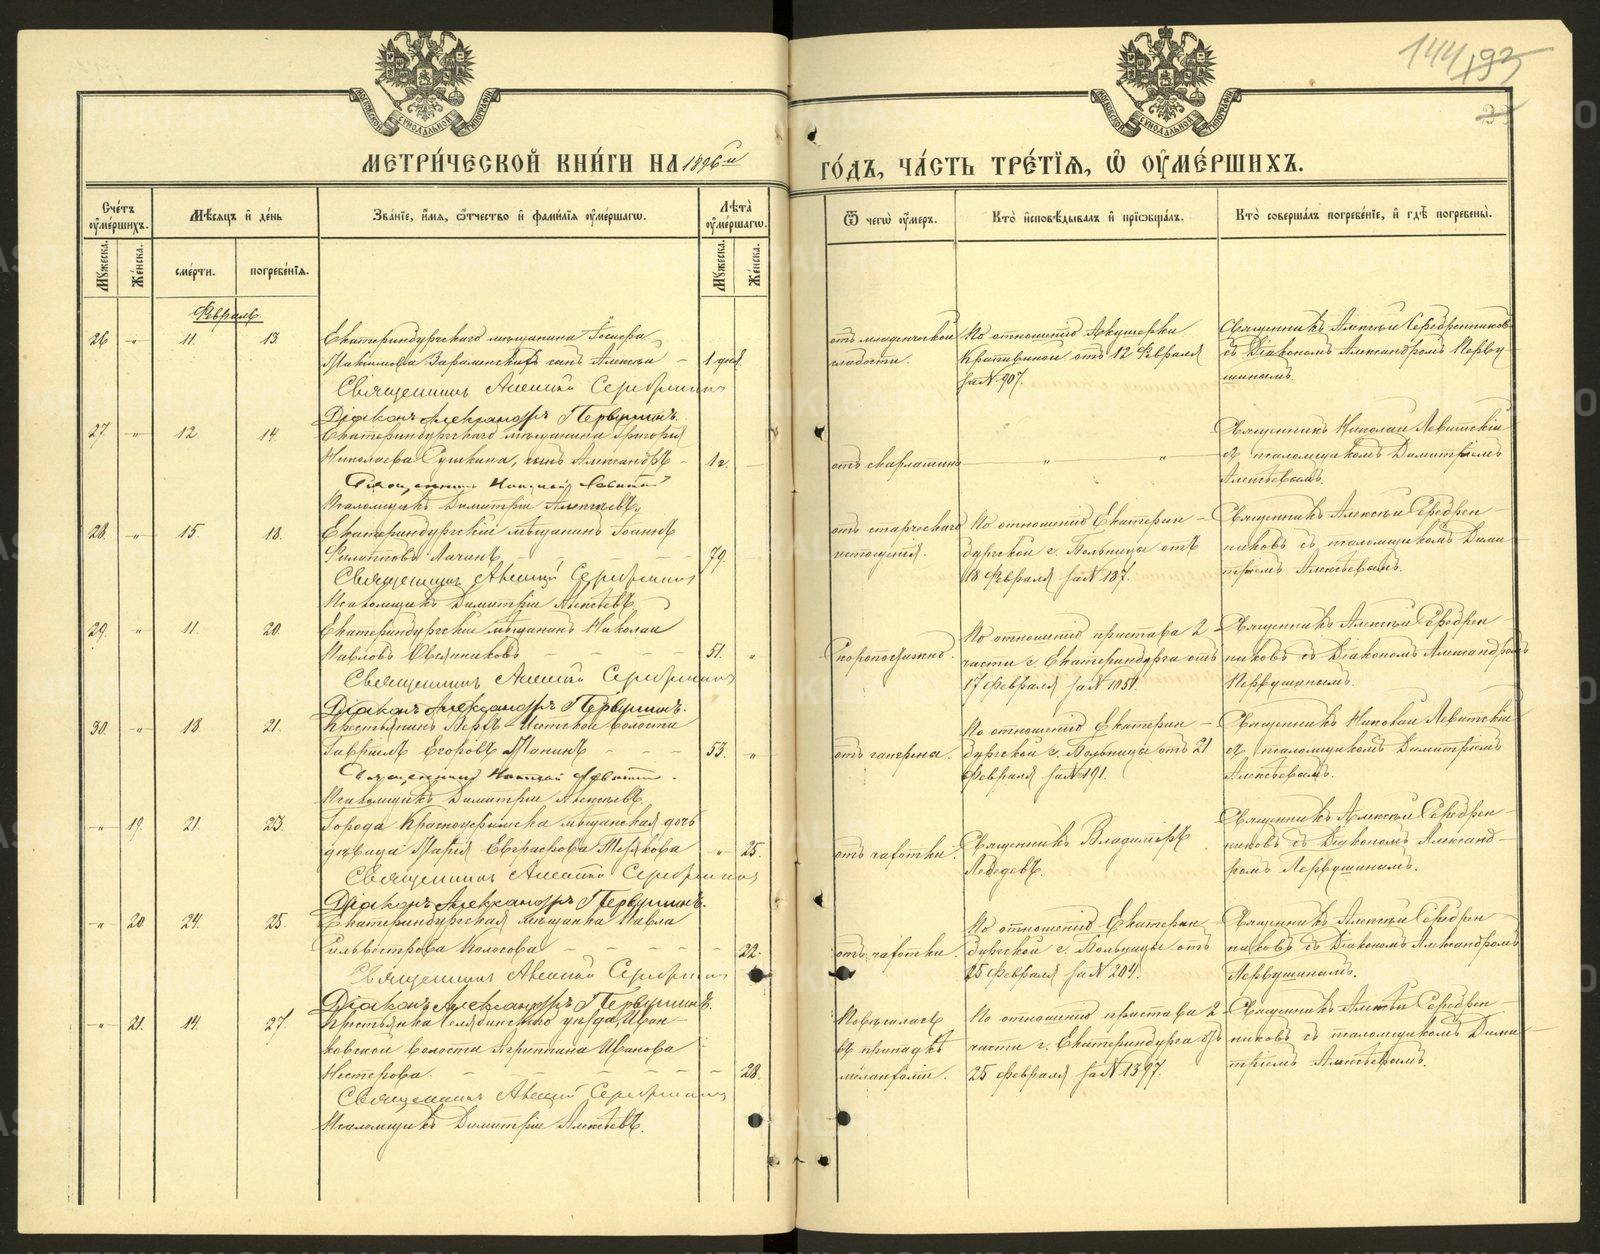 144/193
33
МЕТРИ́ЧЕСКОЙ КНИ́ГИ НА 1896й ГО́ДЪ, ЧА́СТЬ ТРЕ́ТІЯ, Ѿ ОУ҆МЕ́РШИХЪ.
Сче́тъ оу҆ме́ршихъ.
Му́жеска.
Же́нска.
Мѣ́сяцъ и҆ де́нь
сме́рти.
погребе́нїя.
Зва́нїе, и҆́мя, ѻ҆́тчество и҆ фами́лїя оу҆ме́ршагѡ.
Лѣ́та оу҆ме́ршагѡ.
Му́жеска.
Же́нска.
Ѿ чегѡ̀ оу҆́меръ.
Кто̀ и҆сповѣ́дывалъ и҆ прїѡбща́лъ.
Кто̀ соверша́лъ погребе́нїе, и҆ гдѣ̀ погребены̀.
Февраль.
26 " 11. 13.
Екатеринбургскаго мѣщанина Іосифа
сынъ Алексѣй – 1 дня
Священникъ Алексій Серебрениковъ
Діаконъ Александръ Первушинъ.
отъ младенческой
слабости.
По отношенію Акушерки
отъ 12 Февраля
за № 907.
Священникъ Алексѣй Серебренниковъ
съ Діакономъ Александромъ Перву-
шинымъ.
27. " 12. 14.
Екатеринбургскаго мѣщанина Григорія
Николаева Сушкина, сынъ Александръ – 1 г. –
Священникъ Николай Левитскій
Псаломщикъ Димитрій Алексѣевъ.
отъ скарлатины
" "
Священникъ Николай Левитскій
съ псаломщикомъ Димитріемъ
Алексѣевымъ.
28. " 15. 18.
Екатеринбургскій мѣщанинъ Іоаннъ
Филипповъ 79.
Священникъ Алексій Серебрениковъ
Псаломщикъ Димитрій Алексѣевъ.
отъ старческаго
истощенія.
По отношенію Екатерин-
бургской г. Больницы отъ
18 Февраля за № 187.
Священникъ Алексѣй Серебрен-
никовъ съ псаломщикомъ Дими-
тріемъ Алексѣевымъ.
29. " 11. 20.
Екатеринбургскій мѣщанинъ Николай
Павловъ Овсянниковъ 51. "
Священникъ Алексій Серебрениковъ
Діаконъ Александръ Первушинъ.
Скоропостижно.
По отношенію пристава 2
части г. Екатеринбурга отъ
17 Февраля за № 1051.
Священникъ Алексѣй Серебрен
никовъ съ Діакономъ Александромъ
Первушинымъ.
30. " 18. 21.
Крестьянинъ Верхъ-Исетской волости
Гавріилъ Егоровъ 53. "
Священникъ Николай Левитскій.
Псаломщикъ Димитрій Алексѣевъ.
отъ гангрены.
По отношенію Екатерин-
бургской г. Больницы отъ 21
Февраля за № 191.
Священникъ Николай Левитскій
съ псаломщикомъ Димитріемъ
Алексѣевымъ.
" 19. 21. 23.
Города Красноуфимска мѣщанская дочь
дѣвица Марія Евграфова " 25.
Священникъ Алексій Серебрениковъ
Діаконъ Александръ Первушинъ.
отъ чахотки.
Священникъ Владиміръ
Лебедевъ.
Священникъ Алексѣй Серебрен-
никовъ съ Діакономъ Александ-
ромъ Первушинымъ.
" 20. 24. 25.
Екатеринбургская мѣщанка Павла
Сильвестрова Колосова 22.
Священникъ Алексій Серебрениковъ
Діаконъ Александръ Первушинъ.
отъ чахотки.
По отношенію Екатерин
бургской г. Больницы отъ
25 Февраля за № 204.
Священникъ Алексѣй Серебрен
никовъ съ Діакономъ Александромъ
Первушинымъ.
" 21. 14. 27.
Крестьянка Челябинскаго уѣзда, Иван-
ковской волости Агриппина Иванова
Нестерова. 28.
Священникъ Алексій Серебрениковъ
Псаломщикъ Димитрій Алексѣевъ.
Повѣсилась
въ припадкѣ
меланхоліи.
По отношенію пристава 2
части г. Екатеринбурга отъ
25 Февраля за № 1397.
Священникъ Алексѣй Серебрен-
никовъ съ псаломщикомъ Дими-
тріемъ Алексѣевымъ.